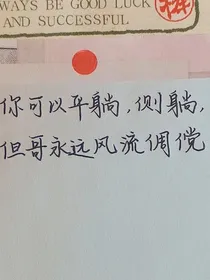 WAYS BE GOOD LUCK
AND SUCCESSFUL
你可以平躺，侧躺，
但哥永远风流倜傥